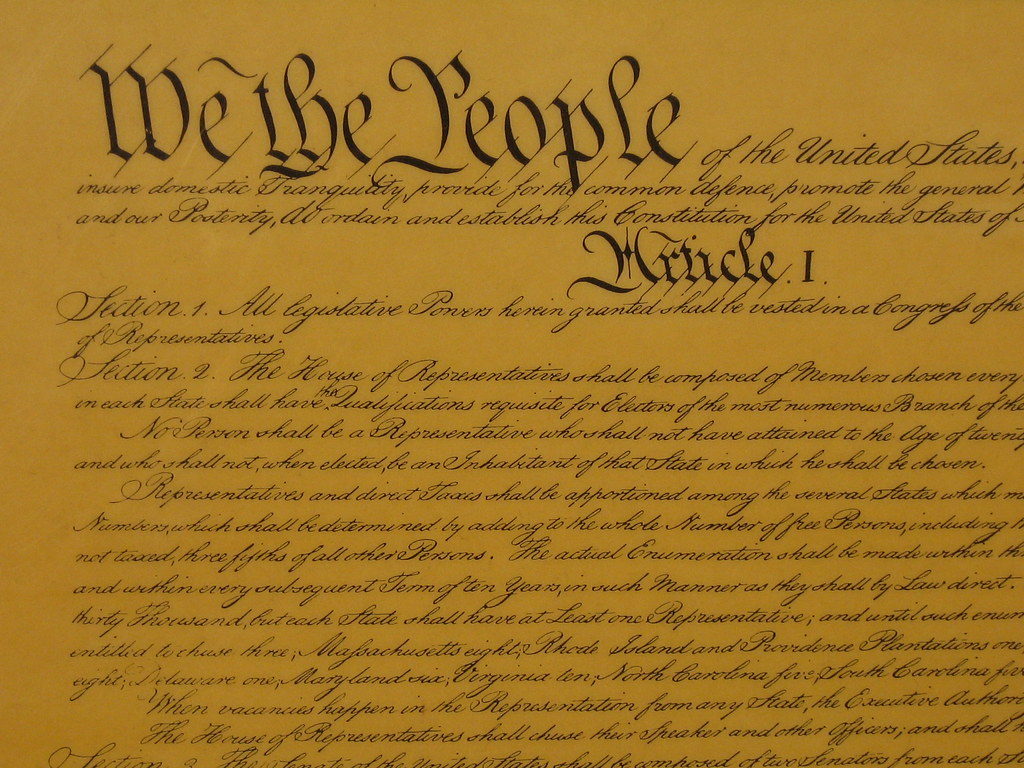 We the People of the United States,
insure domestic Tranquility, provide for the common defence, promote the general
and our Posterity, do ordain and establish this Constitution for the United States of
Article. I.
Section. 1. All legislative Powers herein granted shall be vested in a Congress of the
of Representatives.
Section. 2. The House of Representatives shall be composed of Members chosen every
in each State shall have the Qualifications requisite for Electors of the most numerous Branch of the
No Person shall be a Representative who shall not have attained to the Age of twenty
and who shall not, when elected, be an Inhabitant of that State in which he shall be chosen.
Representatives and direct Taxes shall be apportioned among the several States which m
Numbers, which shall be determined by adding to the whole Number of free Persons, including
not taxed, three fifths of all other Persons. The actual Enumeration shall be made within
and within every subsequent Term of ten Years, in such Manner as they shall by Law direct.
thirty Thousand, but each State shall have at Least one Representative; and until such enum
entitled to chuse three, Massachusetts eight, Rhode Island and Providence Plantations one
eight, Delaware one, Maryland six, Virginia ten, North Carolina five, South Carolina five
When vacancies happen in the Representation from any State, the Executive Autho
The House of Representatives shall chuse their Speaker and other Officers; and shall
Section. 3. The Senate of the United States shall be composed of two Senators from each